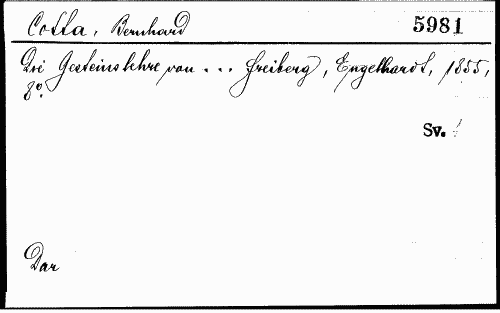 Cotta, Bernhard 5981
Die Gesteinslehre von ... Freiberg, Engelhardt, 1855,
8º.
Sv.
Dar